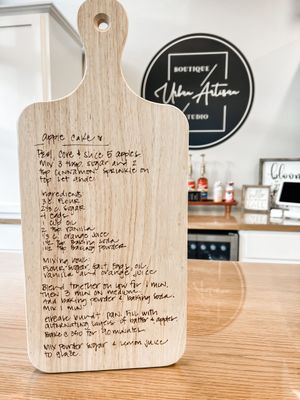 apple cake
Peel, core & slice 5 apples
Mix 3 tbsp. sugar and 2
tsp cinnamon. Sprinkle on
top set aside!
Ingredients
3 c. Flour
2 1/2 c. sugar
4 eggs
1 cup oil
2 tsp vanilla
1/3 c. orange juice
1 1/2 tsp baking soda
1 1/2 tsp baking powder
Mixing bowl:
Flour, sugar, salt, eggs, oil,
vanilla and orange juice
Blend together on low for 1 min.
then 3 min on medium.
Add baking powder & baking soda.
Mix 1 min.
Grease bundt pan. Fill with
alternating layers of batter & apples.
Bake @ 350 for 90 minutes
Mix powder sugar & lemon juice
to glaze.
BOUTIQUE
Urban Artisan
STUDIO